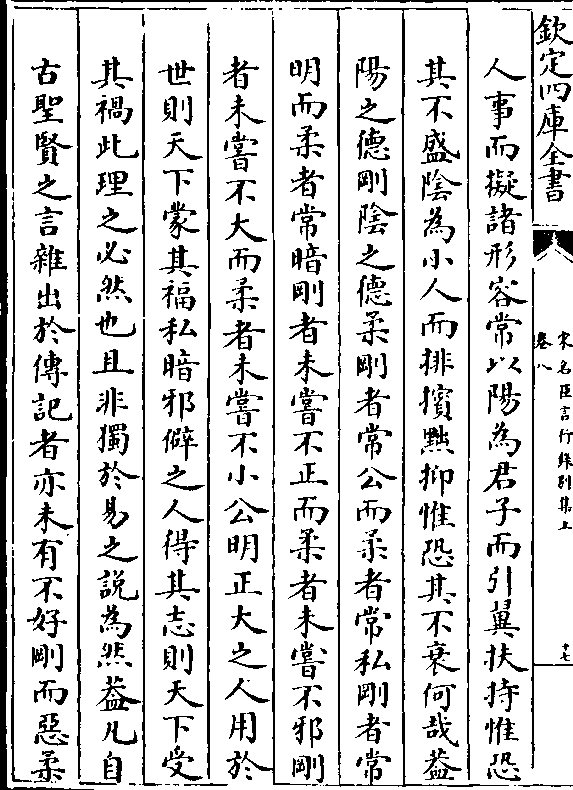 欽定四庫全書
宋名臣言行録别集上
卷八
十七
人事而擬諸形容常以陽為君子而引翼扶持惟恐
其不盛陰為小人而排擯黜抑惟恐其不衰何哉葢
陽之德剛陰之德柔剛者常公而柔者常私剛者常
明而柔者常暗剛者未嘗不正而柔者未嘗不邪剛
者未嘗不大而柔者未嘗不小公明正大之人用於
世則天下蒙其福私暗邪僻之人得其志則天下受
其禍此理之必然也且非獨於易之說為然葢凡自
古聖賢之言雜出於傳記者亦未有不好剛而惡柔